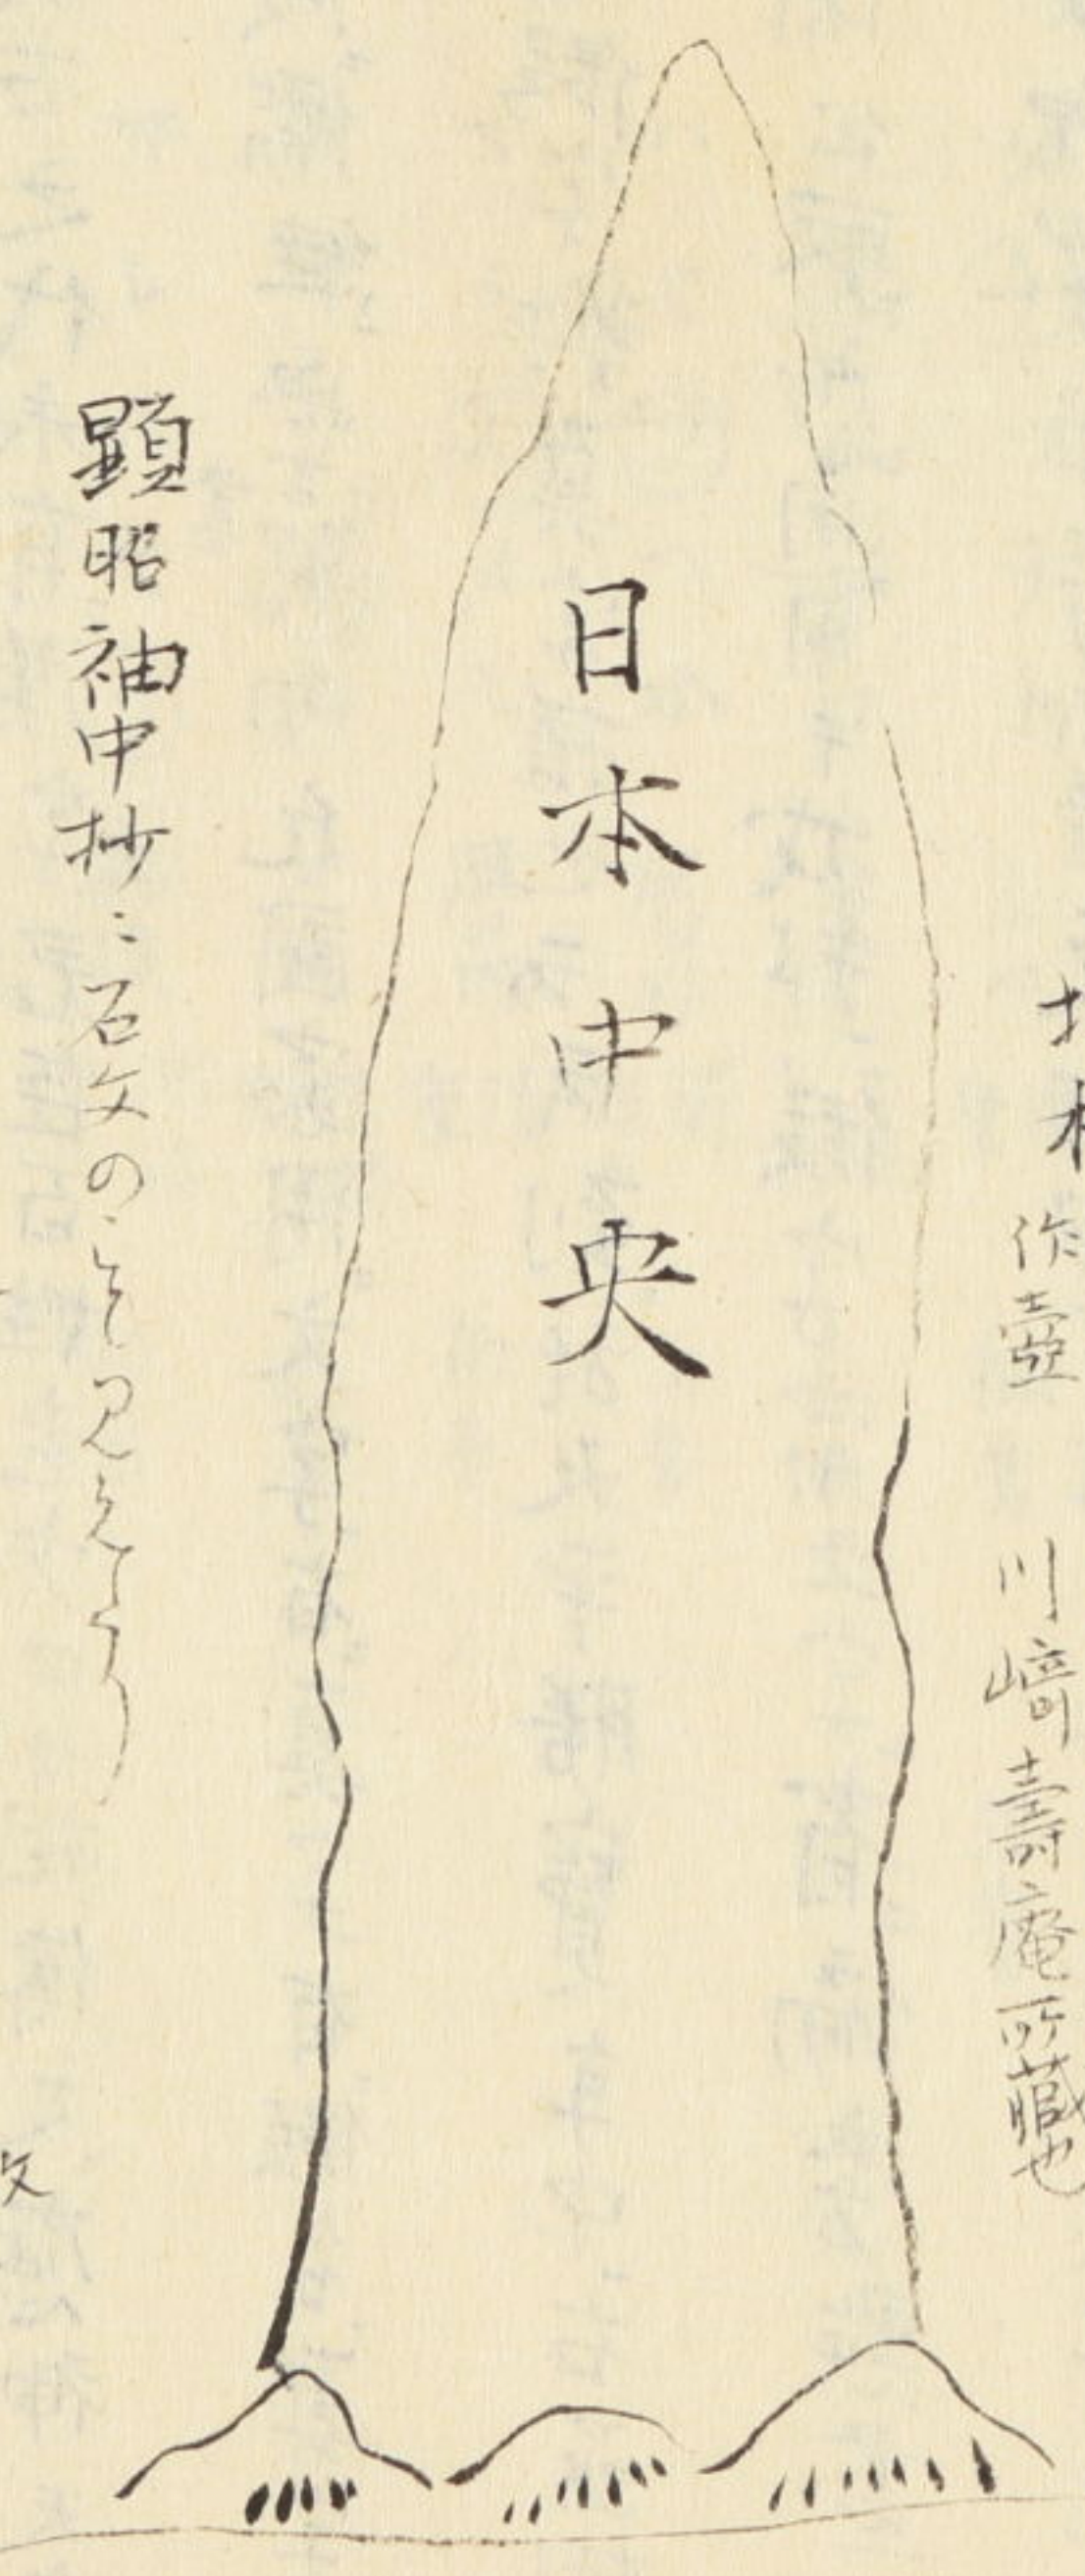 作壺　川﨑壽庵所藏也
日本中央
顕昭袖中抄ニ石文のこと見えたり
文